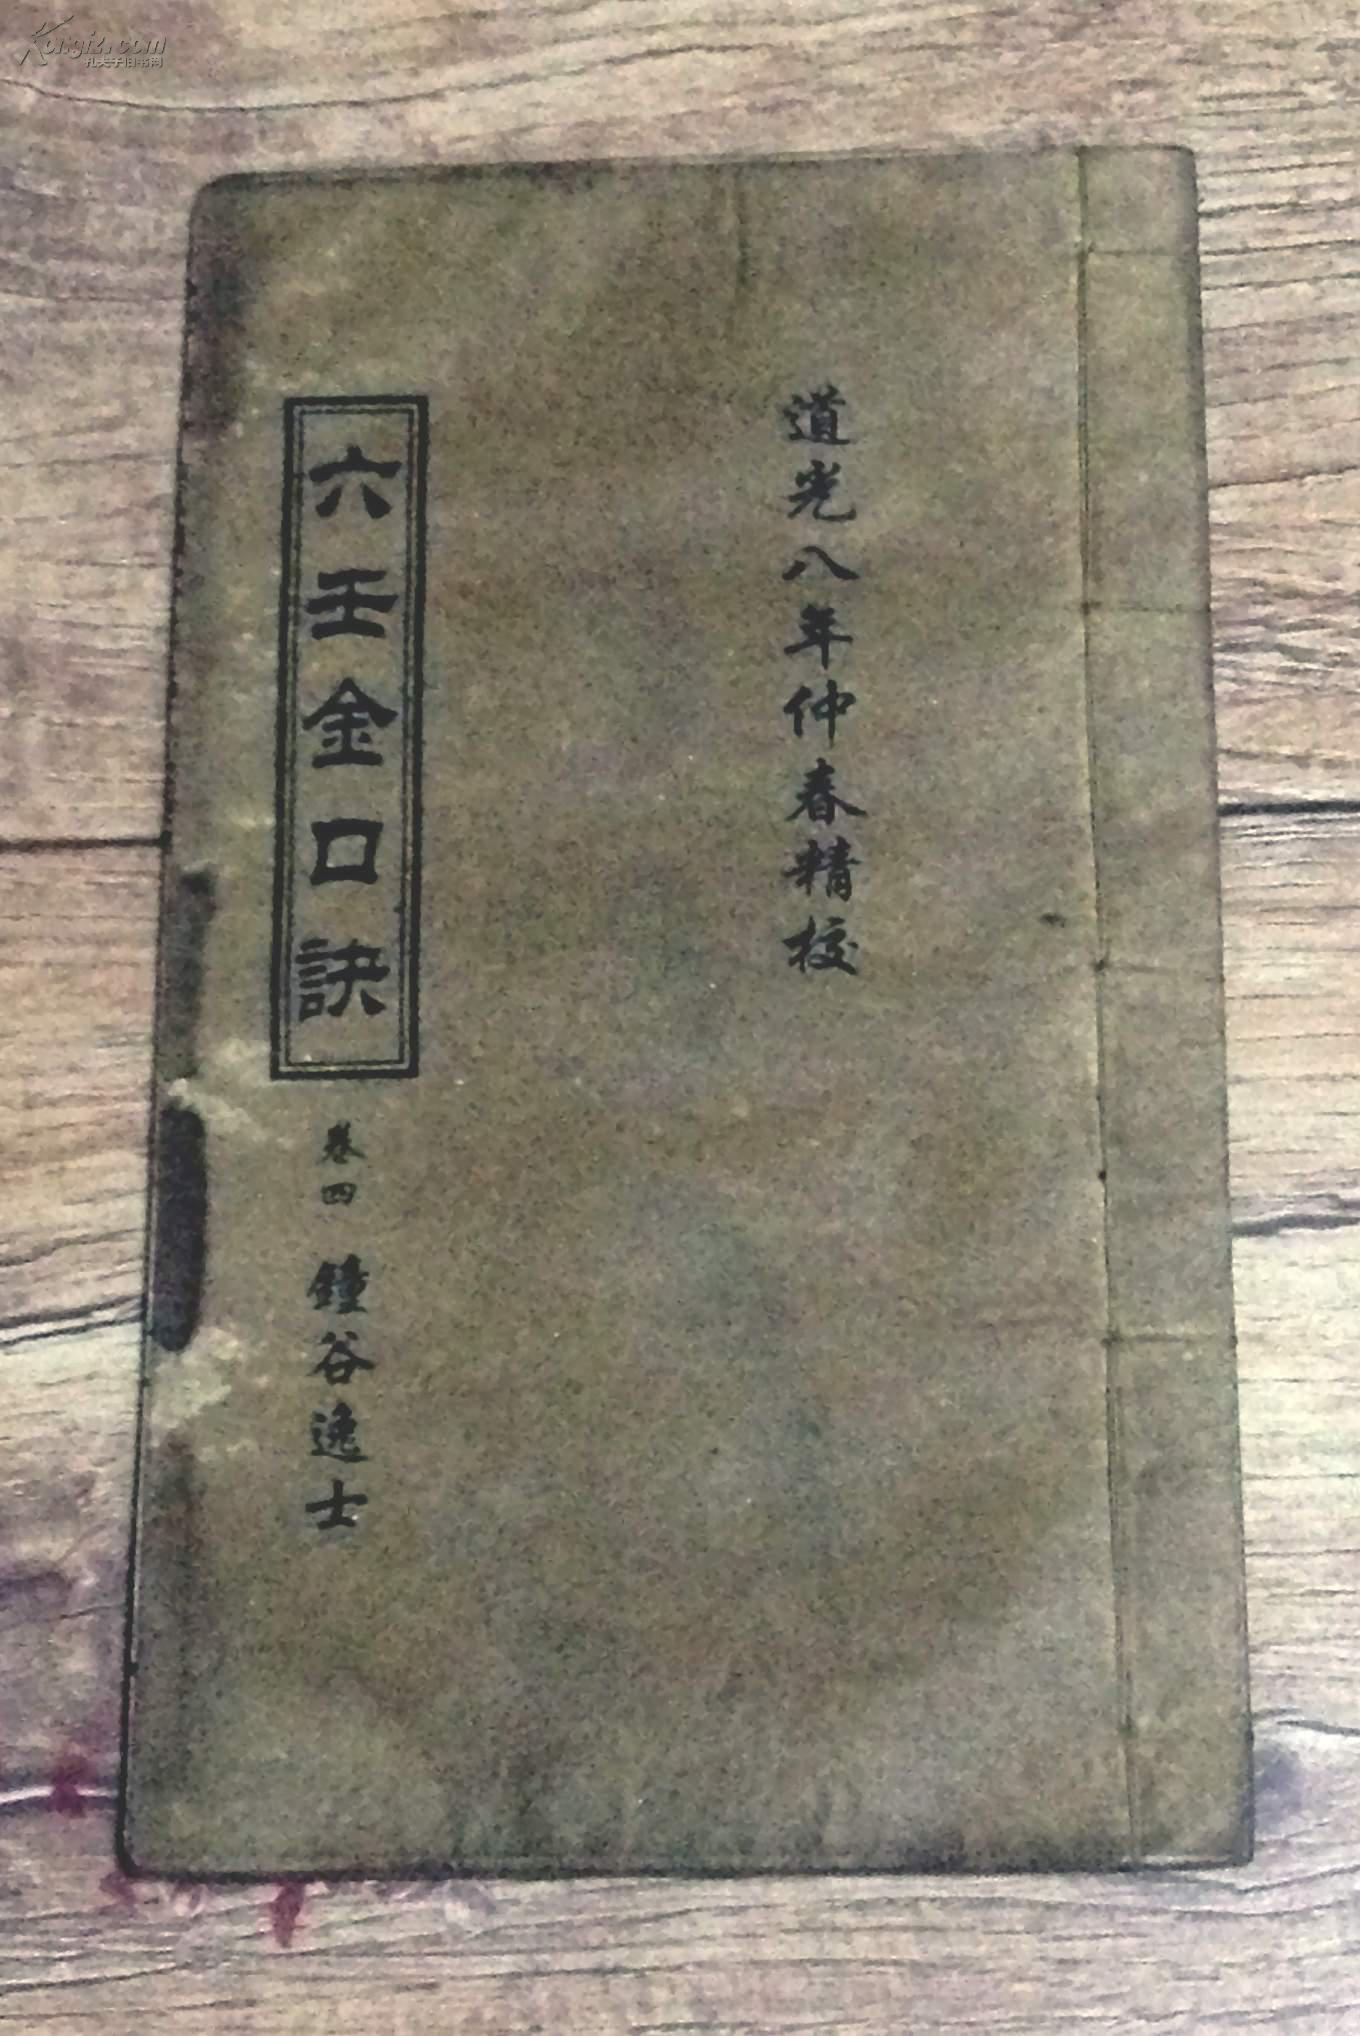 Kongfz.com
孔夫子旧书网
道光八年仲春精校
六壬金口訣
卷四
鐘谷逸士